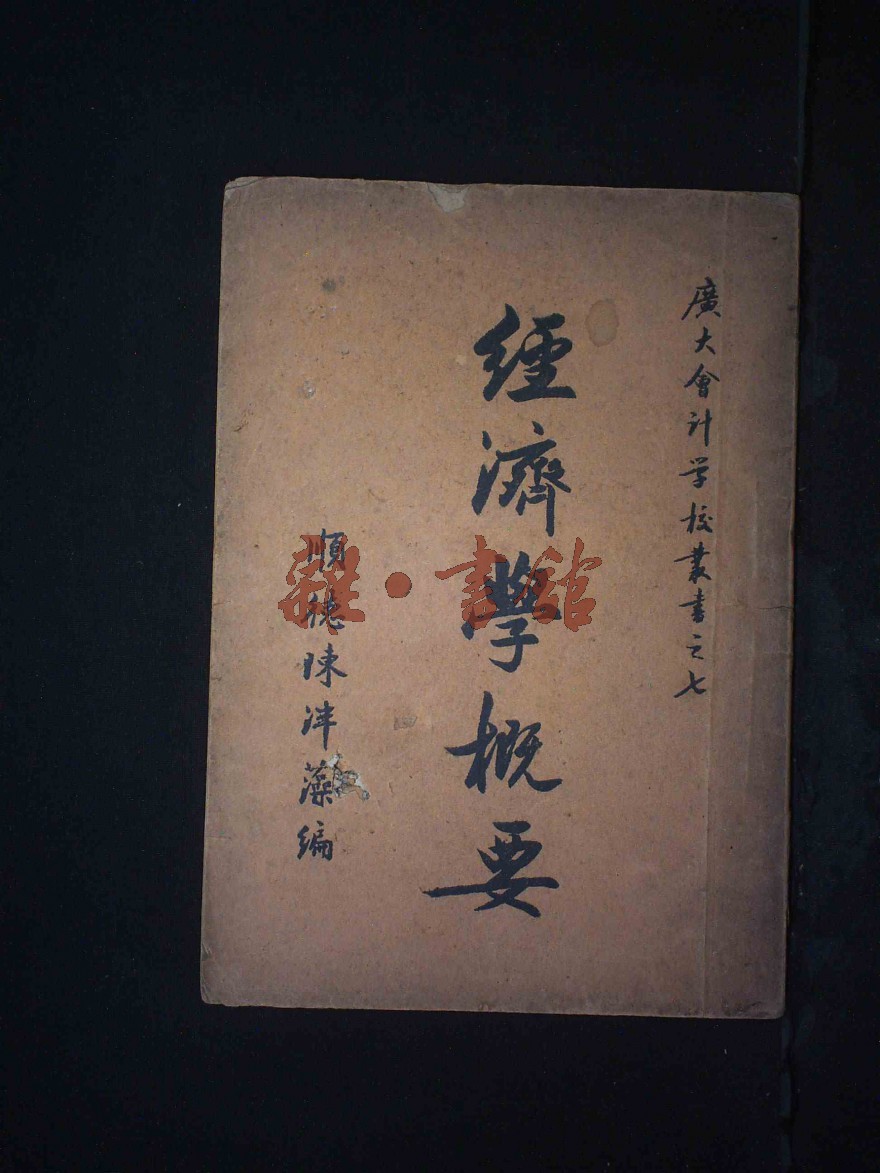 廣大會計学校叢書之七
經濟學概要
順德陳泮藻編
雜·書館